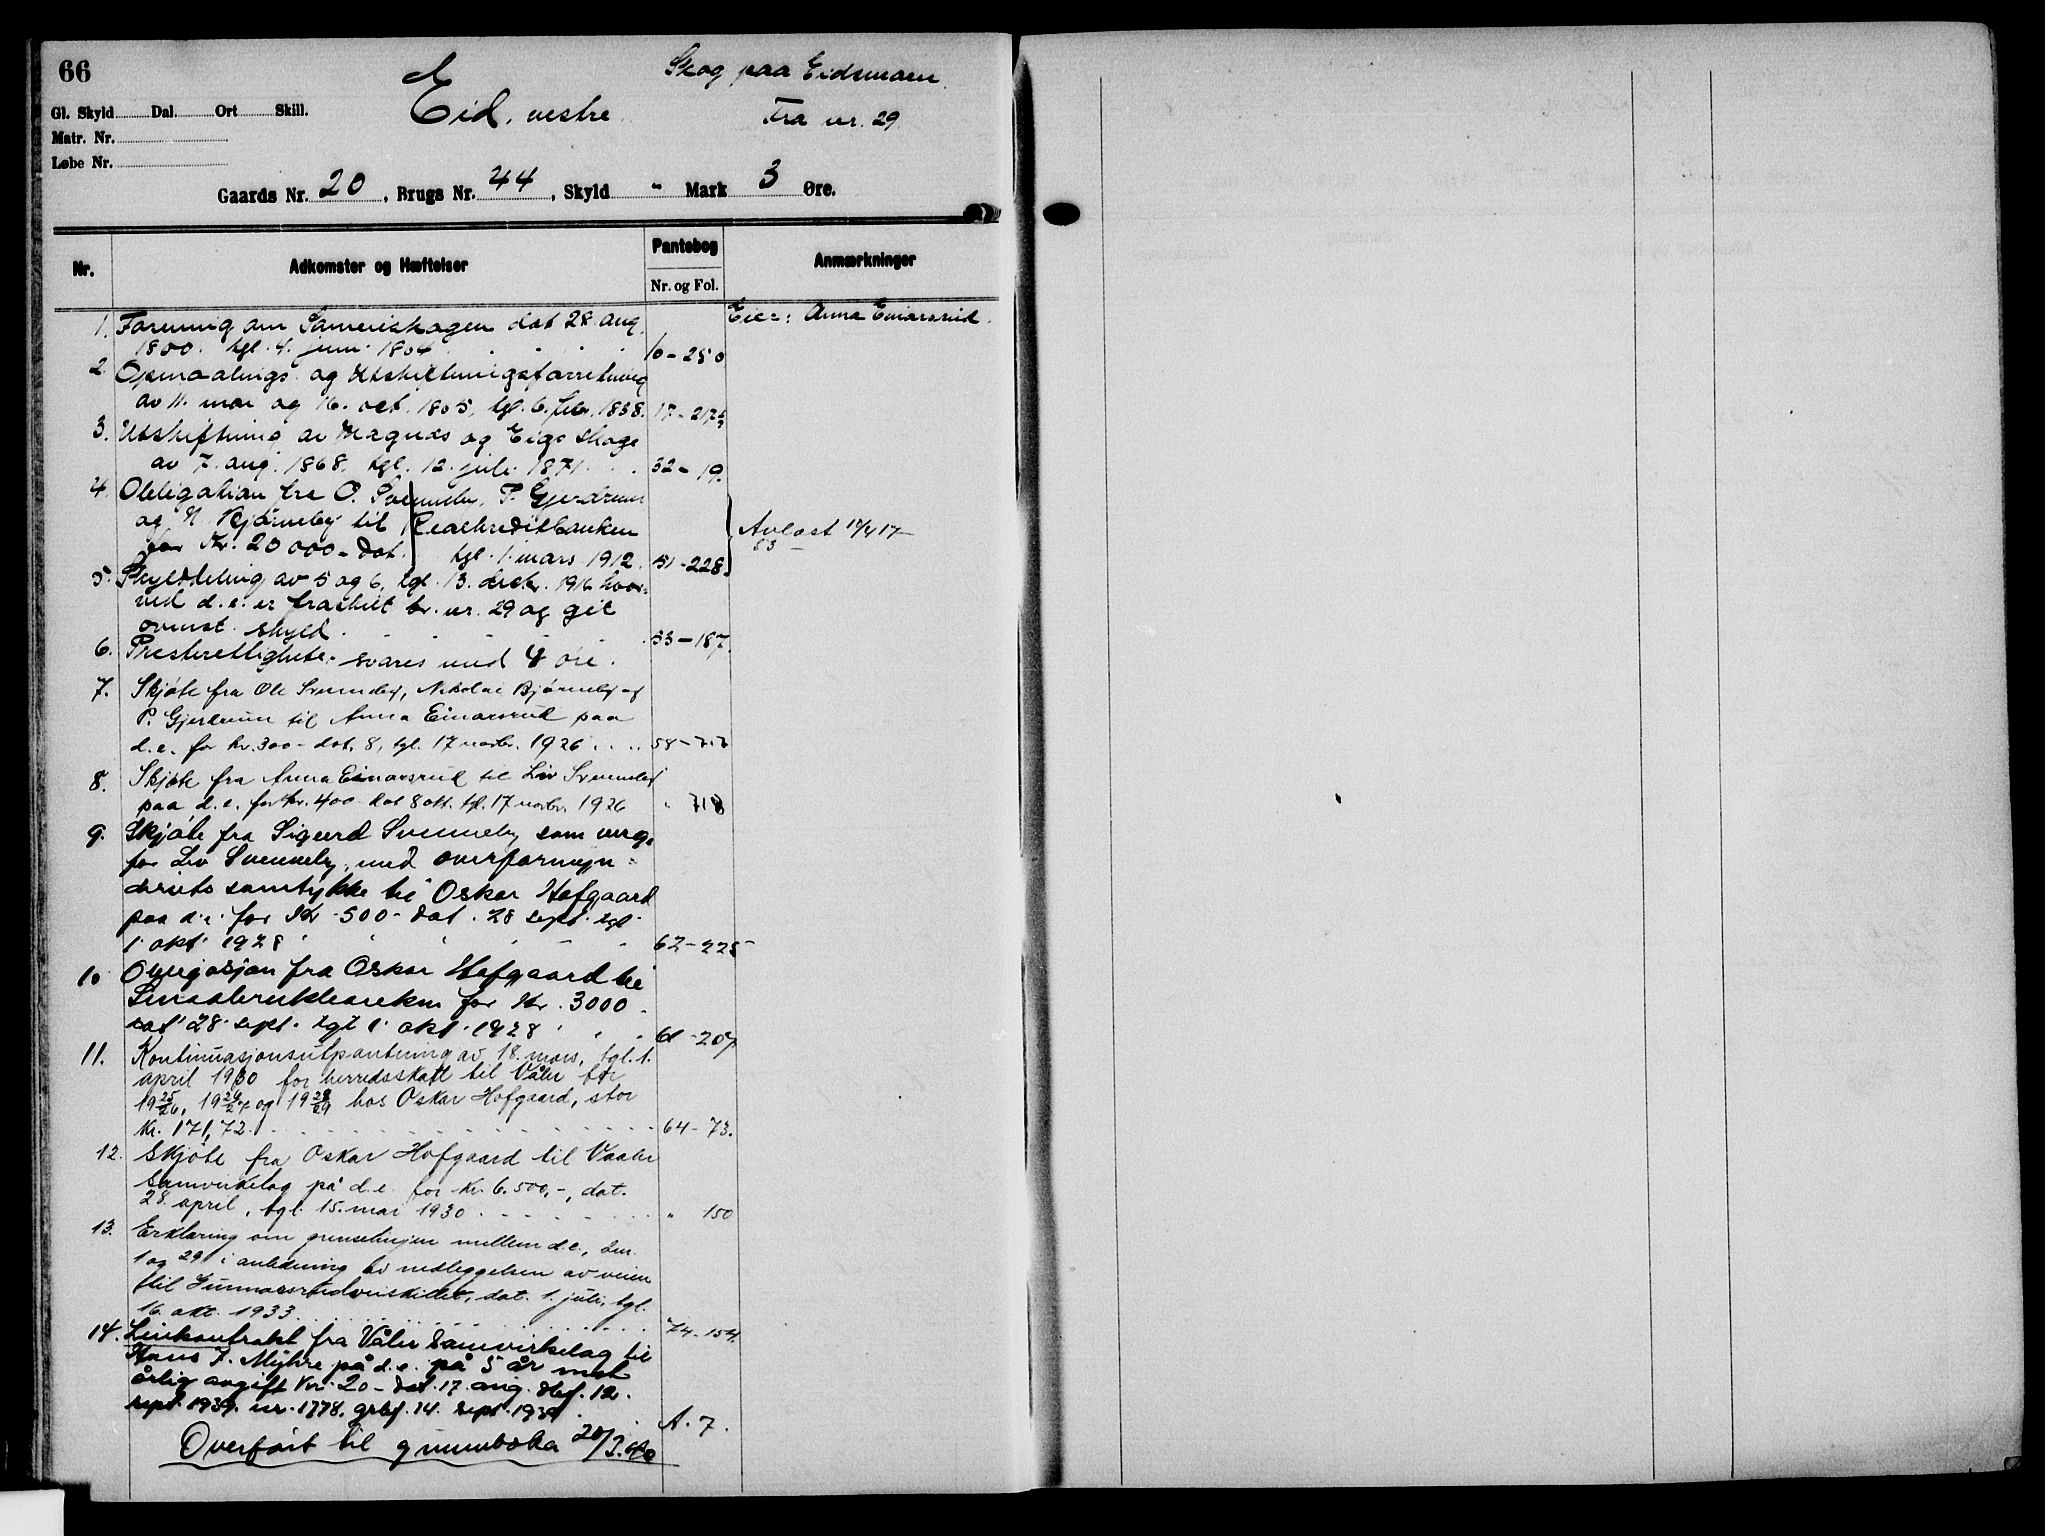 66
Eid, vestre.
Skog paa Eidsmoen.
Fra nr. 29.
Gl. Skyld Dal. Ort Skill.
Matr. Nr.
Løbe Nr.
Gaards Nr. 20, Brugs Nr. 44, Skyld " Mark 3 Øre.
Nr. Adkomster og Hæftelser Pantebog Anmærkninger
Nr. og Fol.
Eier: Anna Einarsrud.
1. Forening om Sameiskogen dat 28 aug.
1800. tgl. 4. juni 1804 10-250
2. Opmaalings- og Utskiftningsforretning
av 11. mai og 16. oct. 1805, tgl. 6. febr. 1838. 17-217
3. Utskiftning av Magnæs og Eigs skoge
av 7. aug. 1868. tgl. 12. juli 1871. 32-19.
4. Obligation fra O. Svenneby, P. Gjerdrum
og N. Bjørneby til Realkreditbanken
for Kr. 20000- dat. tgl. 1. mars 1912. 51-228
Avlæst 14/4 17
53
5. Skylddeling av 5 og 6, tgl. 13. decbr. 1916 hvor-
ved d.e. er fraskilt br. nr. 29 og git
ovenst. skyld. 53-187.
6. Presterettighete. svares med 4 øre.
7. Skjøte fra Ole Svenneby, Nikolai Bjørneby og
P. Gjerdrum til Anna Einarsrud paa
d.e. for kr. 300- dat. 8, tgl. 17 novbr. 1926 58-717
8. Skjøte fra Anna Einarsrud til Liv Svenneby
paa d.e. for kr. 400- dat 8 okt. tgl. 17 novbr. 1926 " 718
9. Skjøte fra Sigurd Svenneby som verge
for Liv Svenneby, med overformyn-
deriets samtykke til Oskar Hofgaard
paa d.e. for Kr. 500- dat. 28 sept. tgl.
1. okt. 1928 62-225
10 Obligasjon fra Oskar Hofgaard til
Smaabrukbanken for Kr. 3000.
dat. 28. sept. tgl 1. okt. 1928 61-207
11. Kontinuasjonsutpantning av 18. mars, tgl. 1.
april 1930 for herredsskatt til Våler for
1925/26, 1926/27 og 1928/29 hos Oskar Hofgaard, stor
Kr. 171,72. 64-73.
12. Skjøte fra Oskar Hofgaard til Vaaler
Samvirkelag på d.e. for Kr. 6.500,-, dat.
28. april, tgl. 15. mai 1930 " 150
13. Erklæring om grenselinjen mellem d.e., bnr.
1 og 29 i anledning av nedleggelsen av veien
til Gunnarsrudveiskillet, dat. 1. juli, tgl.
16. okt. 1933. 74-154.
14. Leiekontrakt fra Våler Samvirkelag til
Hans J. Myhre på d.e. på 5 år mot
årlig avgift kr. 20- dat. 17. aug. dbf. 12.
sept. 1939. nr. 1778. grbf. 14. sept. 1939. A. 7.
Overført til grunnboka 20/2.40